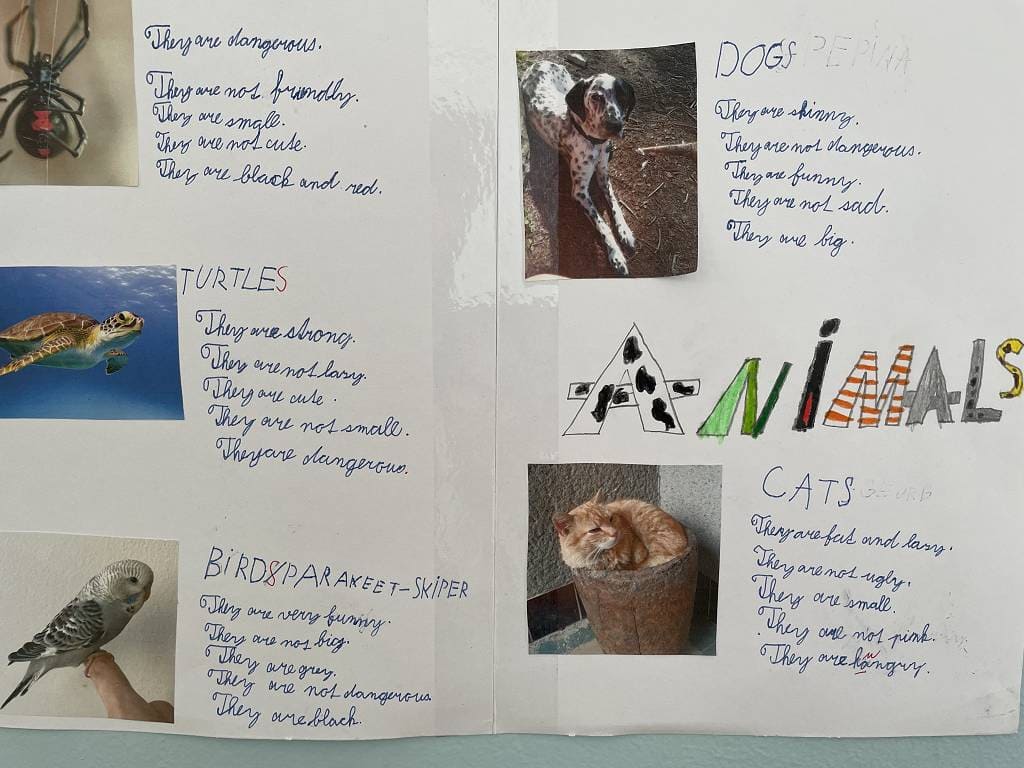 They are dangerous.
They are not friendly.
They are small.
They are not cute.
They are black and red.
TURTLES
They are strong.
They are not lazy.
They are cute.
They are not small.
They are dangerous.
BiRDS PARAKEET-SKiPER
They are very funny.
They are not big.
They are grey.
They are not dangerous.
They are black.
DOGS PEPINA
They are skinny.
They are not dangerous.
They are funny.
They are not sad.
They are big.
ANiMALS
CATS
They are fat and lazy.
They are not ugly.
They are small.
They are not pink.
They are hungry.